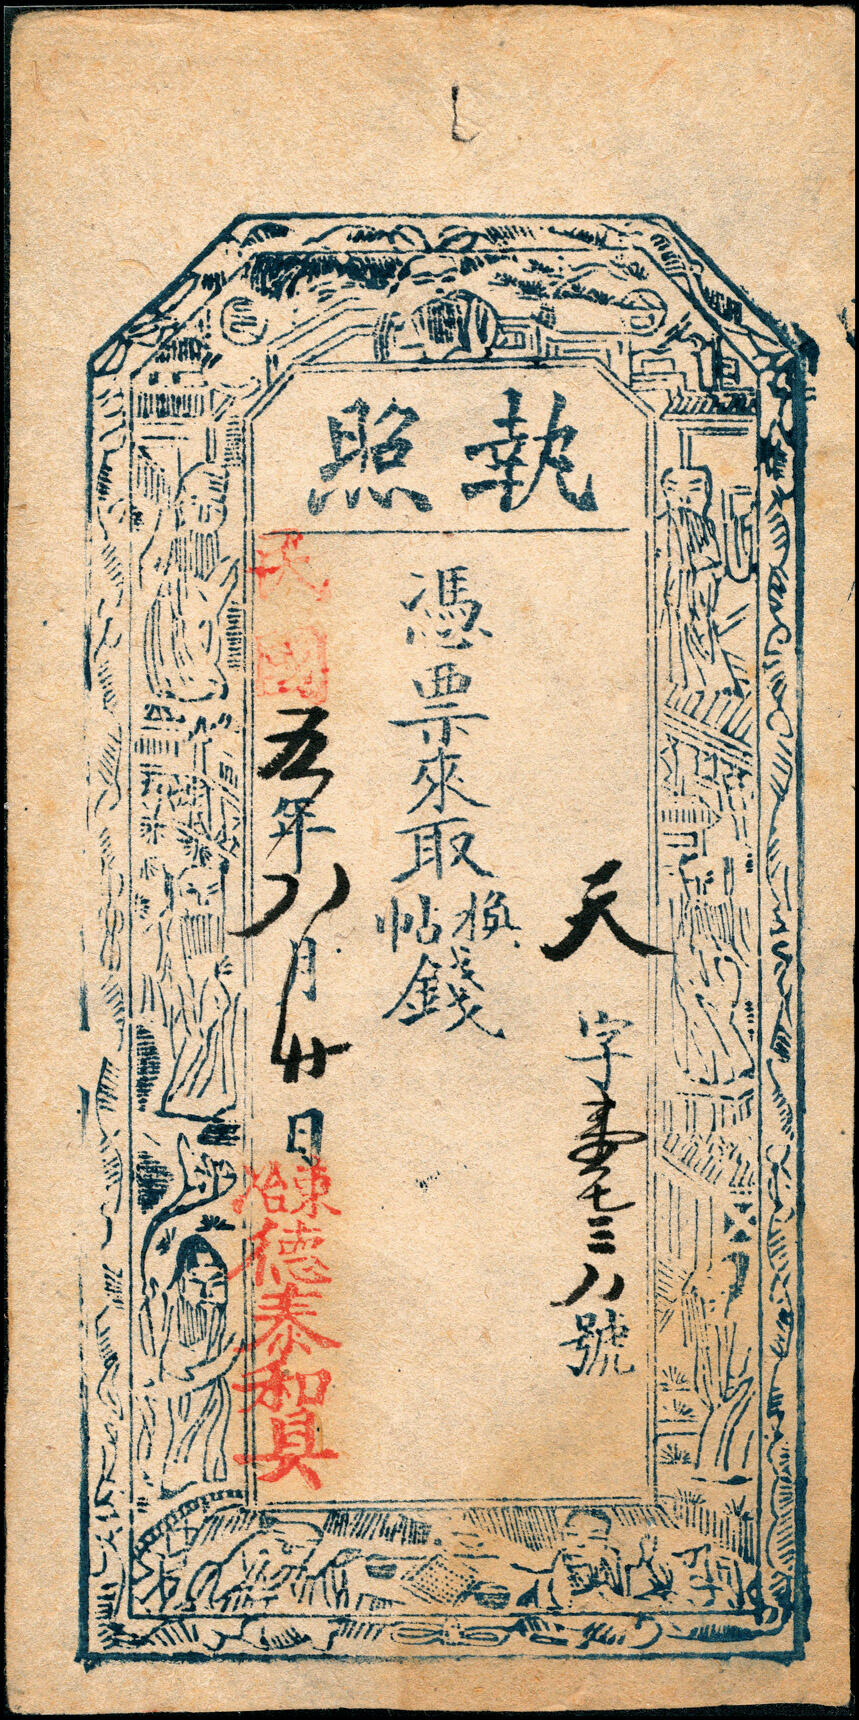 執照
天字壹七三八號
憑票來取換帖錢
民國五年八月廿日
東冶德泰和具